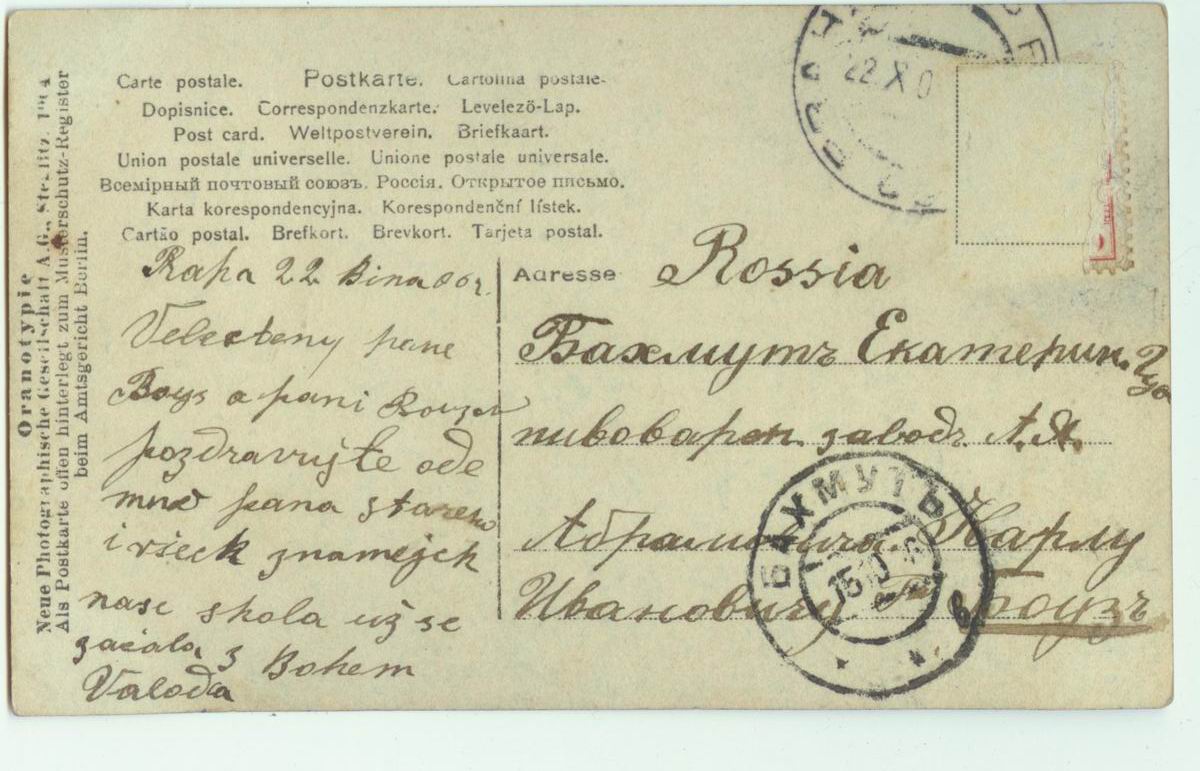 Carte postale. Postkarte. Cartolina postale.
Dopisnice. Correspondenzkarte. Levelező-Lap.
Post card. Weltpostverein. Briefkaart.
Union postale universelle. Unione postale universale.
Всемірный почтовый союзъ. Россія. Открытое письмо.
Karta korespondencyjna. Korespondenční lístek.
Cartão postal. Brefkort. Brevkort. Tarjeta postal.
Oranotypie
Neue Photographische Gesellschaft A.G., Steglitz. 1904
Als Postkarte offen hinterlegt zum Musterschutz-Register
beim Amtsgericht Berlin.
22
Velecteny pane
Bouz a pani
pozdravujte ode
mne pana
i všeck znamejch
nase skola už se
začala z Bohem
Valoda
Adresse
Rossia
Бахмутъ Екатерин.
пивоварен. заводъ А.Я.
Абрамовича. Карлу
Ивановичу Боузъ
22 X 0
БАХМУТЪ
15 10